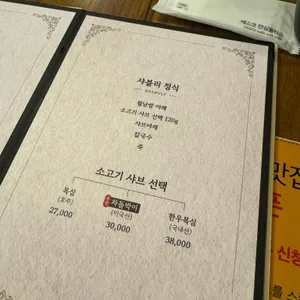 샤블리 정식
SHABULY
월남쌈 야채
소고기 샤브 선택 120g
샤브야채
칼국수
죽
소고기 샤브 선택
목심
(호주)
27,000
차돌박이
(미국산)
30,000
한우목심
(국내산)
38,000
맛집
신청
를